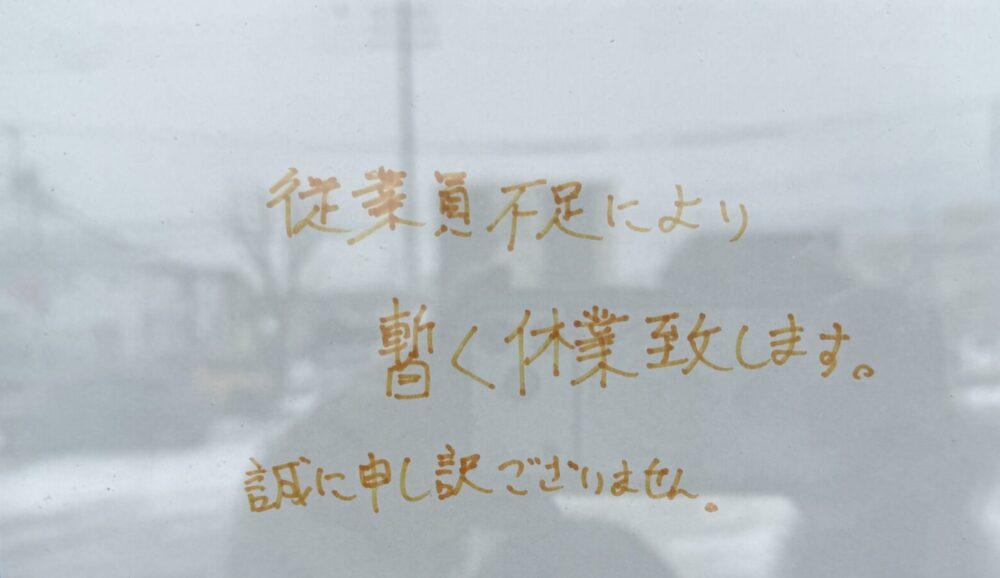 従業員不足により
暫く休業致します。
誠に申し訳ございません.